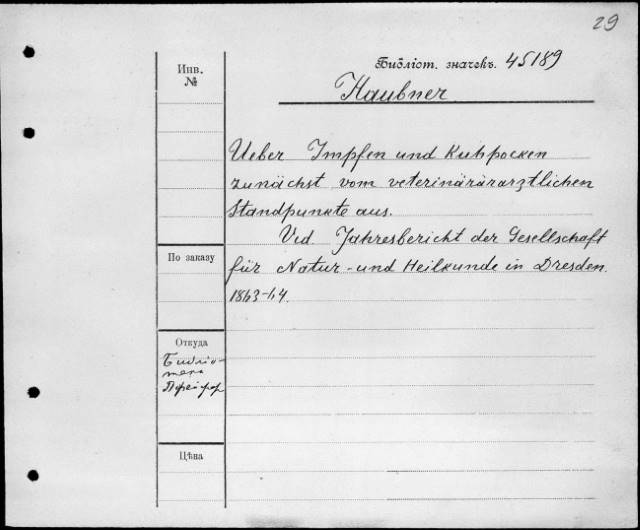 29
Инв.
№
Библіот. значекъ. 45189
Haubner
Ueber Impfen und Kuhpocken
zunächst vom veterinärärarztlichen
Standpunkte aus.
Vid. Jahresbericht der Gesellschaft
für Natur- und Heilkunde in Dresden.
1863-64.
По заказу
Откуда
Библіо-
тека
Пфейфер
Цѣна